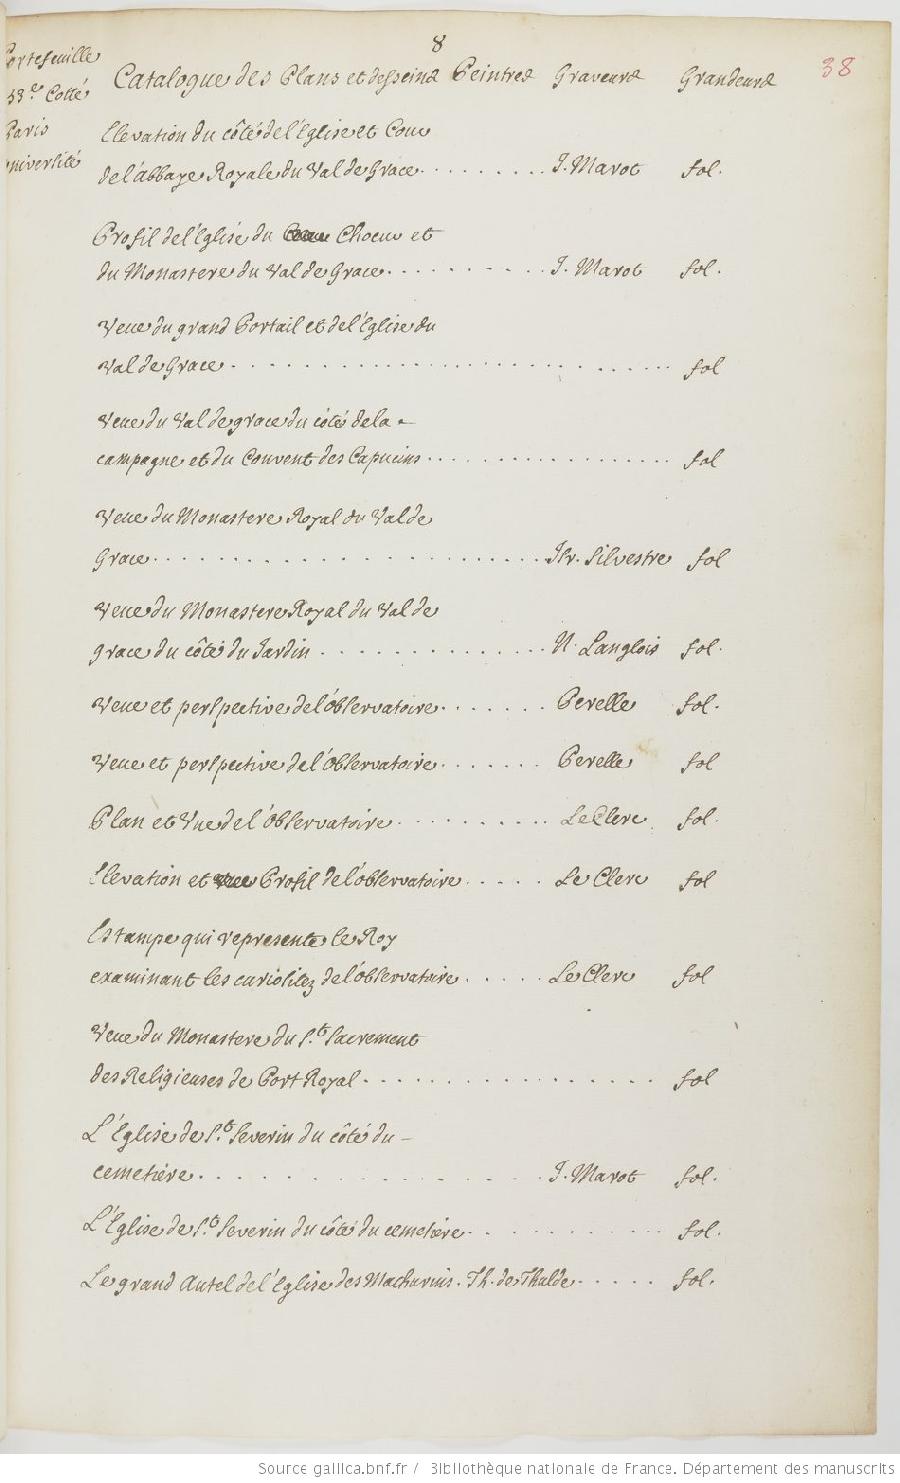 8
38
Portefeuille
33.e Cotté
Paris
université
Catalogue des Plans et desseins Peintres Graveurs Grandeurs
Elevation du côté de l'Eglise et Cour
de l'abbaye Royale du Val de Grace......... J. Marot fol.
Profil de l'Eglise du Choeur et
du Monastere du Val de Grace.......... J. Marot fol.
Veue du grand Portail et de l'Eglise du
Val de Grace.............................. fol
Veue du Val de grace du côté de la -
campagne et du Couvent des Capucins................. fol
Veue du Monastere Royal du Val de
Grace..................... Isr. Silvestre fol
Veue du Monastere Royal du Val de
grace du côté du Jardin.............. N. Langlois fol.
Veue et perspective de l'observatoire....... Perelle fol.
Veue et perspective de l'observatoire....... Perelle fol
Plan et Vue de l'observatoire.......... Le Clerc fol.
Elevation et Profil de l'observatoire..... Le Clerc fol
Estampe qui represente le Roy
examinant les curiositez de l'observatoire..... Le Clerc fol
Veue du Monastere du St Sacrement
des Religieuses de Port Royal.................. fol
L'Eglise de St Severin du côté du -
cemetiere................ J. Marot fol.
L'Eglise de St Severin du côté du cemetiere............ fol.
Le grand Autel de l'Eglise des Mathurins. Th. de Thulde..... fol.
Source gallica.bnf.fr / Bibliothèque nationale de France. Département des manuscrits